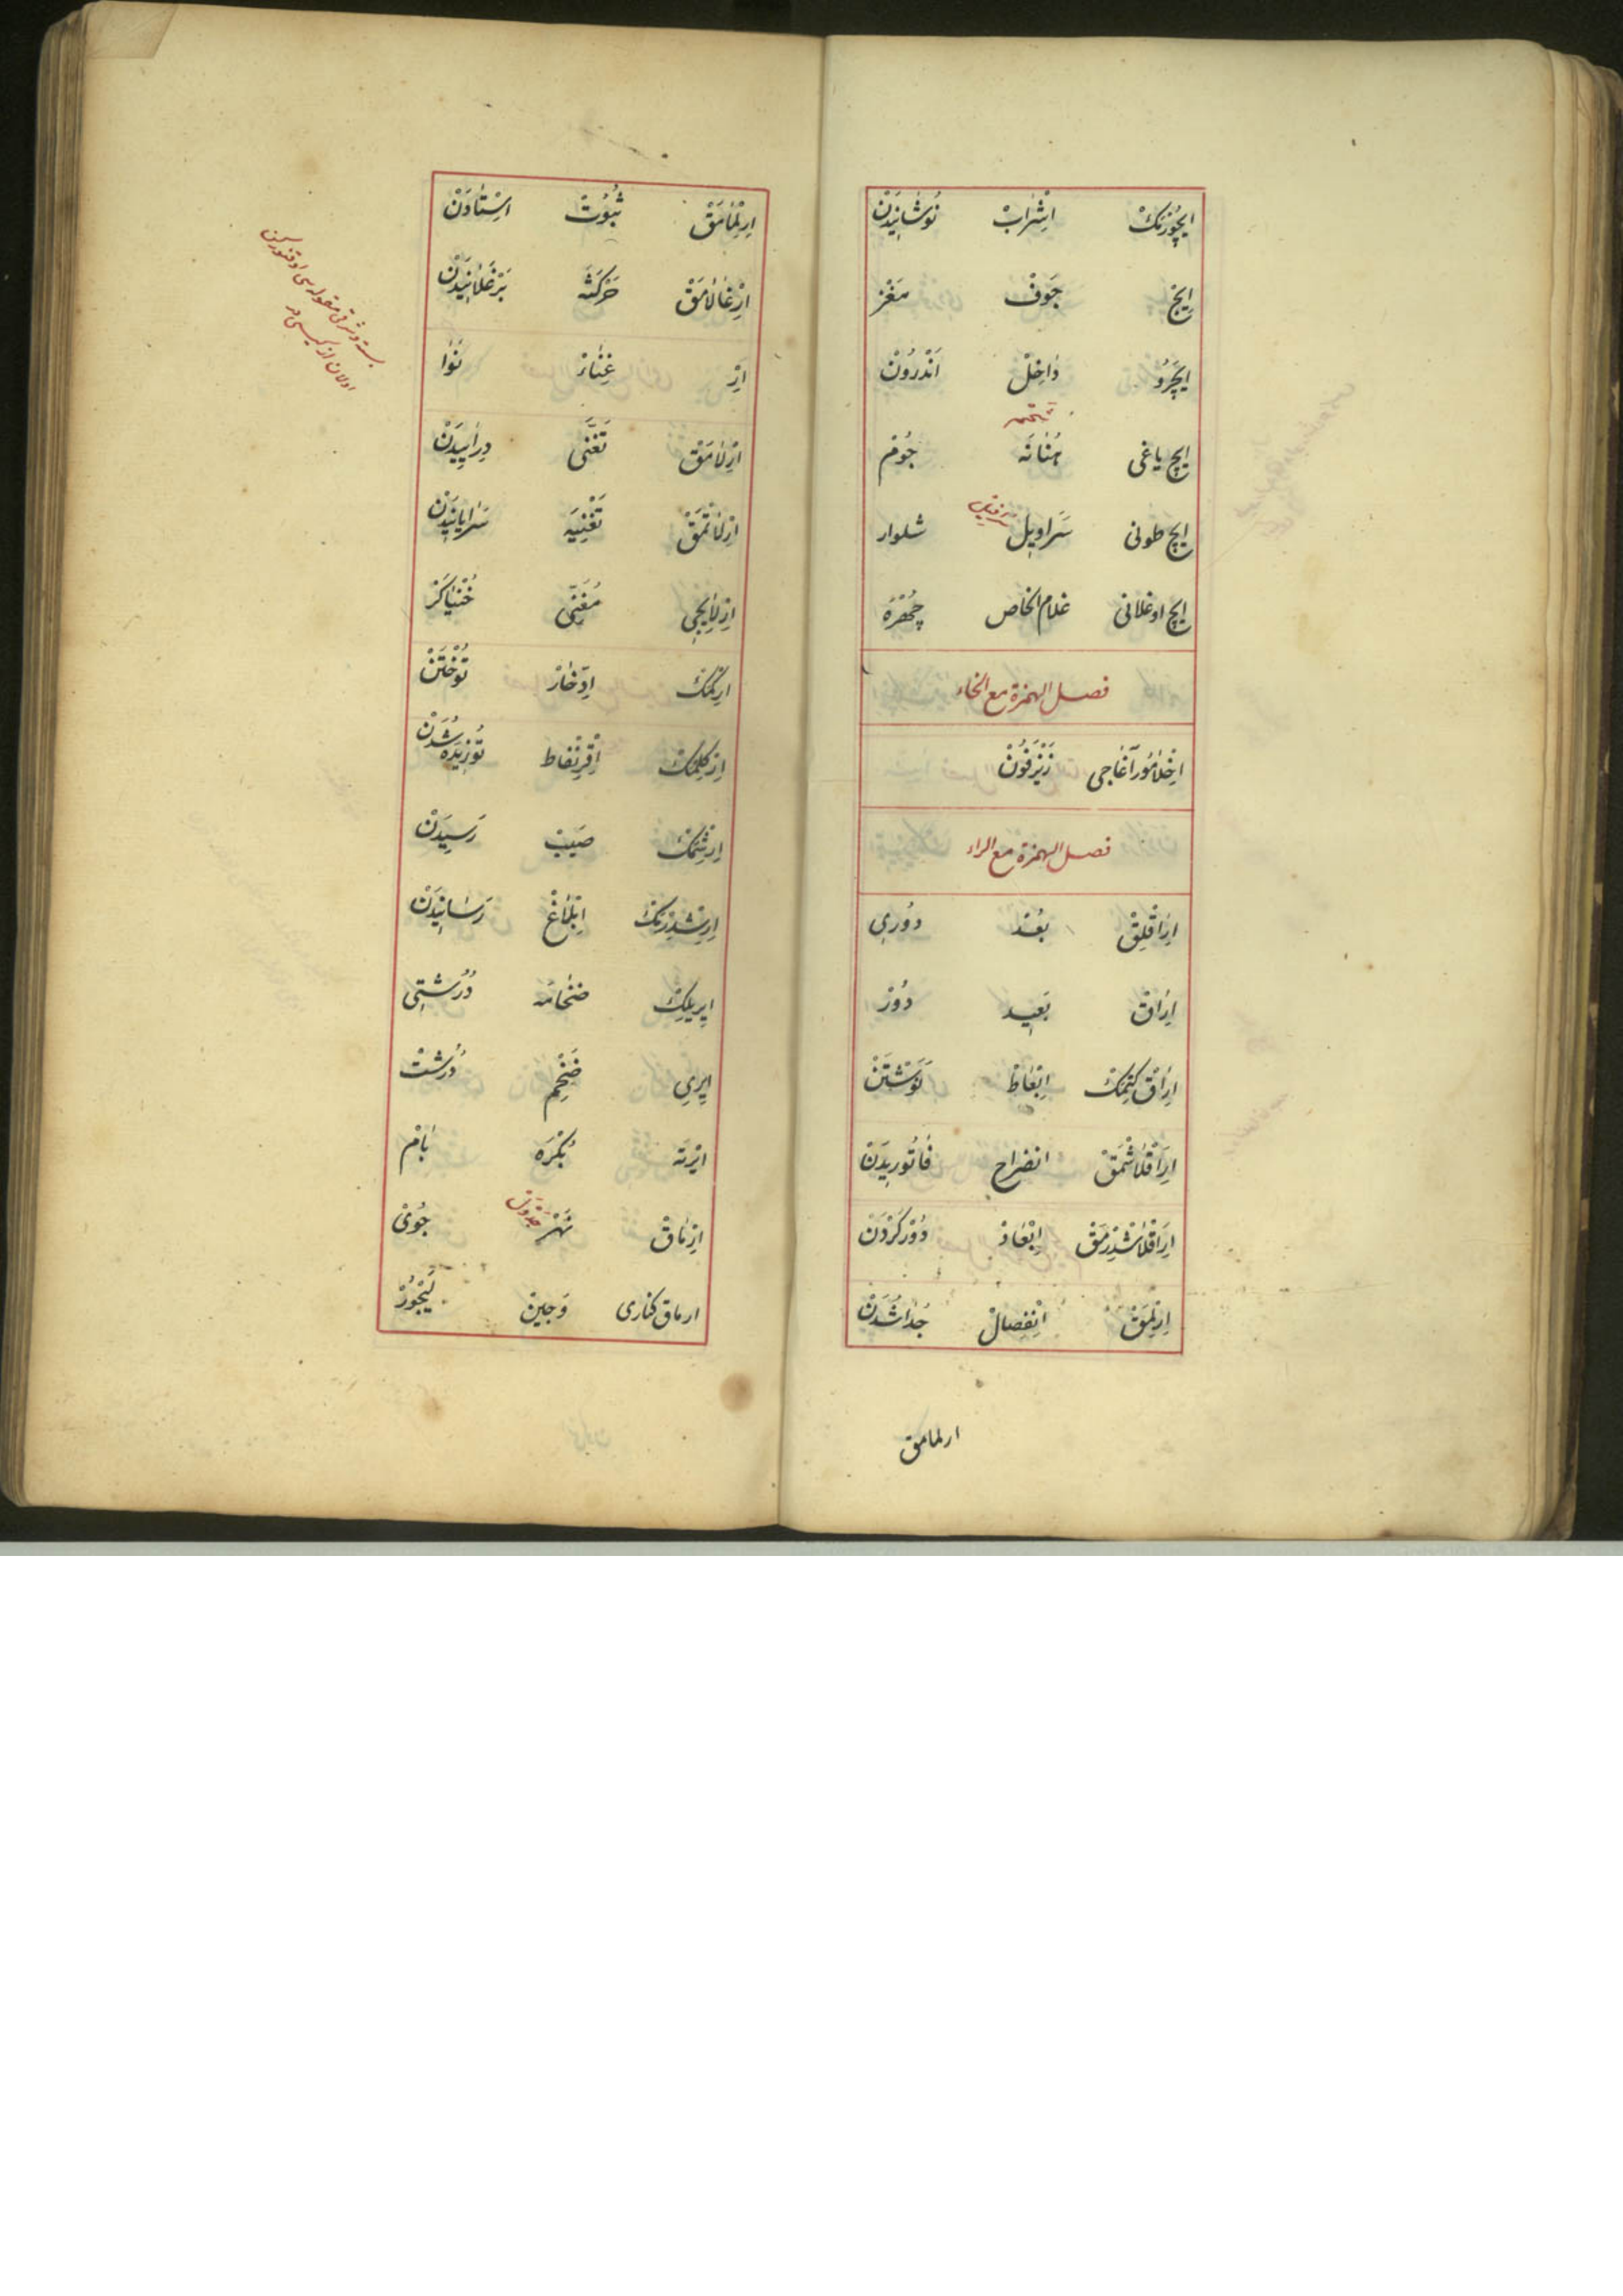 ایچورمك اشراب نوشانیدن
ایچ جوف مغز
ایچرو داخل اندرون
ایچ یاغی هنانه جوم
ایچ طونی سراویل شلوار
ایچ اوغلانی غلام الخاص چهره
فصل الهمزة مع الخاء
اخلامور آغاجی زیزفون
فصل الهمزة مع الراء
ایراقلق بعد دوری
ایراق بعید دور
ایراق کتمك ابعاط
ایراقلاشمق انضراح فاتوریدن
ایراقلاشدرمق ابعاد دور کردن
ایرلمق انفصال جدا شدن
ارلمامق
ایرلمامق ثبوت استادن
ارغالامق حرکثه برغلانیدن
ار غناء نوا
ارلامق تغنی دراییدن
ارلاتمق تغنیه سرایانیدن
ارلایجی مغنی خنیاکر
ارکمك ادخار توختن
ارکلمك اقرنفاط توزیده شدن
ارشمك صیب رسیدن
ارشدرمك ابلاغ رسانیدن
ایریلك ضخامه درشتی
ایری ضخم درشت
ایرته بکره بام
ارماق نهر جدول جوی
ارماق کناری وجین لیجور